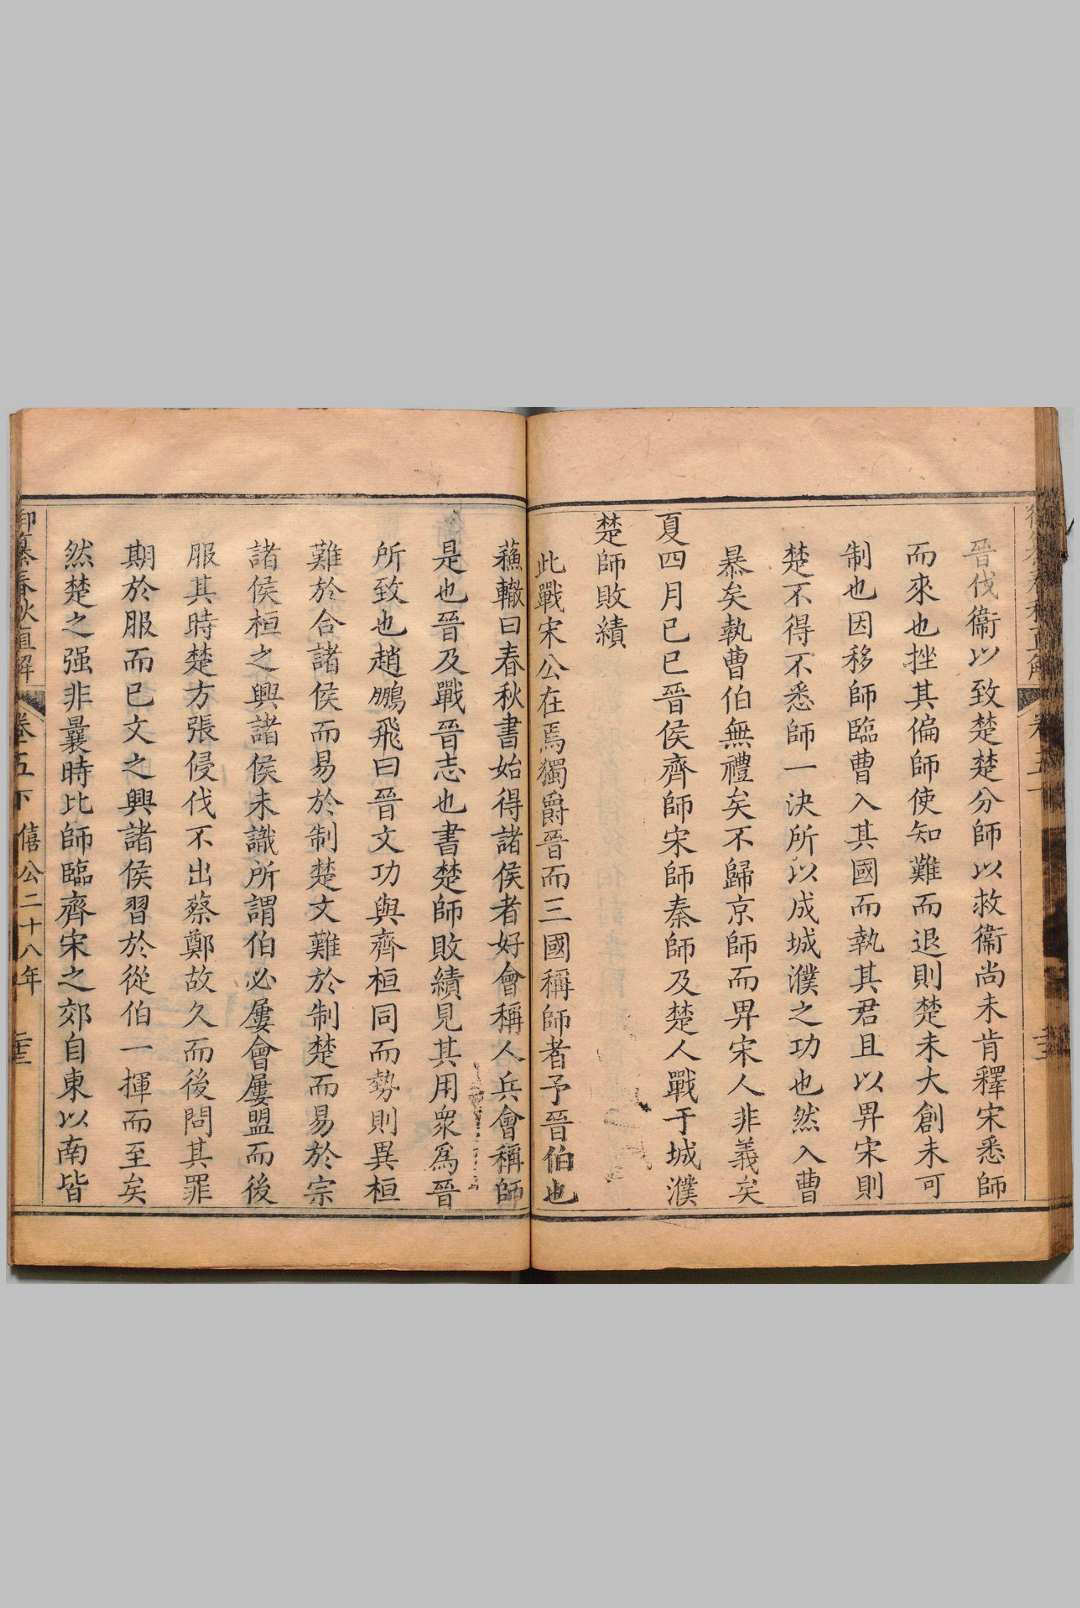 晉伐衞以致楚楚分師以救衞尚未肯釋宋悉師
而來也挫其偏師使知難而退則楚未大創未可
制也因移師臨曹入其國而執其君且以畀宋則
楚不得不悉師一決所以成城濮之功也然入曹
暴矣執曹伯無禮矣不歸京師而畀宋人非義矣
夏四月己巳晉侯齊師宋師秦師及楚人戰于城濮
楚師敗績
此戰宋公在焉獨爵晉而三國稱師者予晉伯也
蘓轍曰春秋書始得諸侯者好會稱人兵會稱師
是也晉及戰晉志也書楚師敗績見其用衆爲晉
所致也趙鵬飛曰晉文功與齊桓同而勢則異桓
難於合諸侯而易於制楚文難於制楚而易於宗
諸侯桓之興諸侯未識所謂伯必屢會屢盟而後
服其時楚方張侵伐不出蔡鄭故久而後問其罪
期於服而已文之興諸侯習於從伯一揮而至矣
然楚之强非曩時比師臨齊宋之郊自東以南皆
御纂春秋直解 卷五下 僖公二十八年